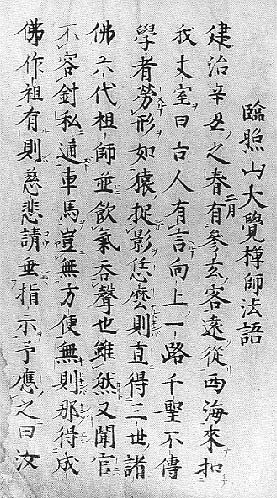 臨照山大覺禪師法語
建治辛丑之春二月有參玄客遠從西海來扣
我丈室曰古人有言向上一路千聖不傳
學者勞形如猿捉影恁麼則直得三世諸
佛六代祖師並飲氣吞聲也雖然又聞官
不容針私通車馬豈無方便無則那得成
佛作祖有則慈悲請垂指示予應之曰汝